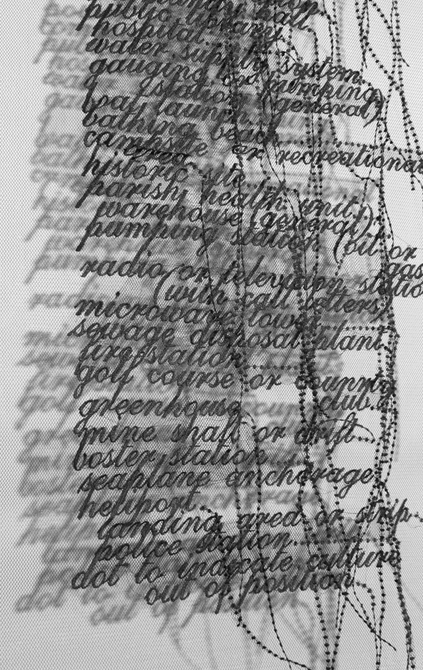 public
hospital
water supply system
gauging
station (general)
boat launch
bathing beach
campsite or recreational
area
historic site
parish health unit
warehouse (general)
pumping station (oil or
gas
radio or television station
(with call letters)
microwave tower
sewage disposal plant
fire station
golf course or country
club
greenhouse
mine shaft or drift
boster station
seaplane anchorage
heliport
landing area or strip
police station
dot to indicate culture
out of position